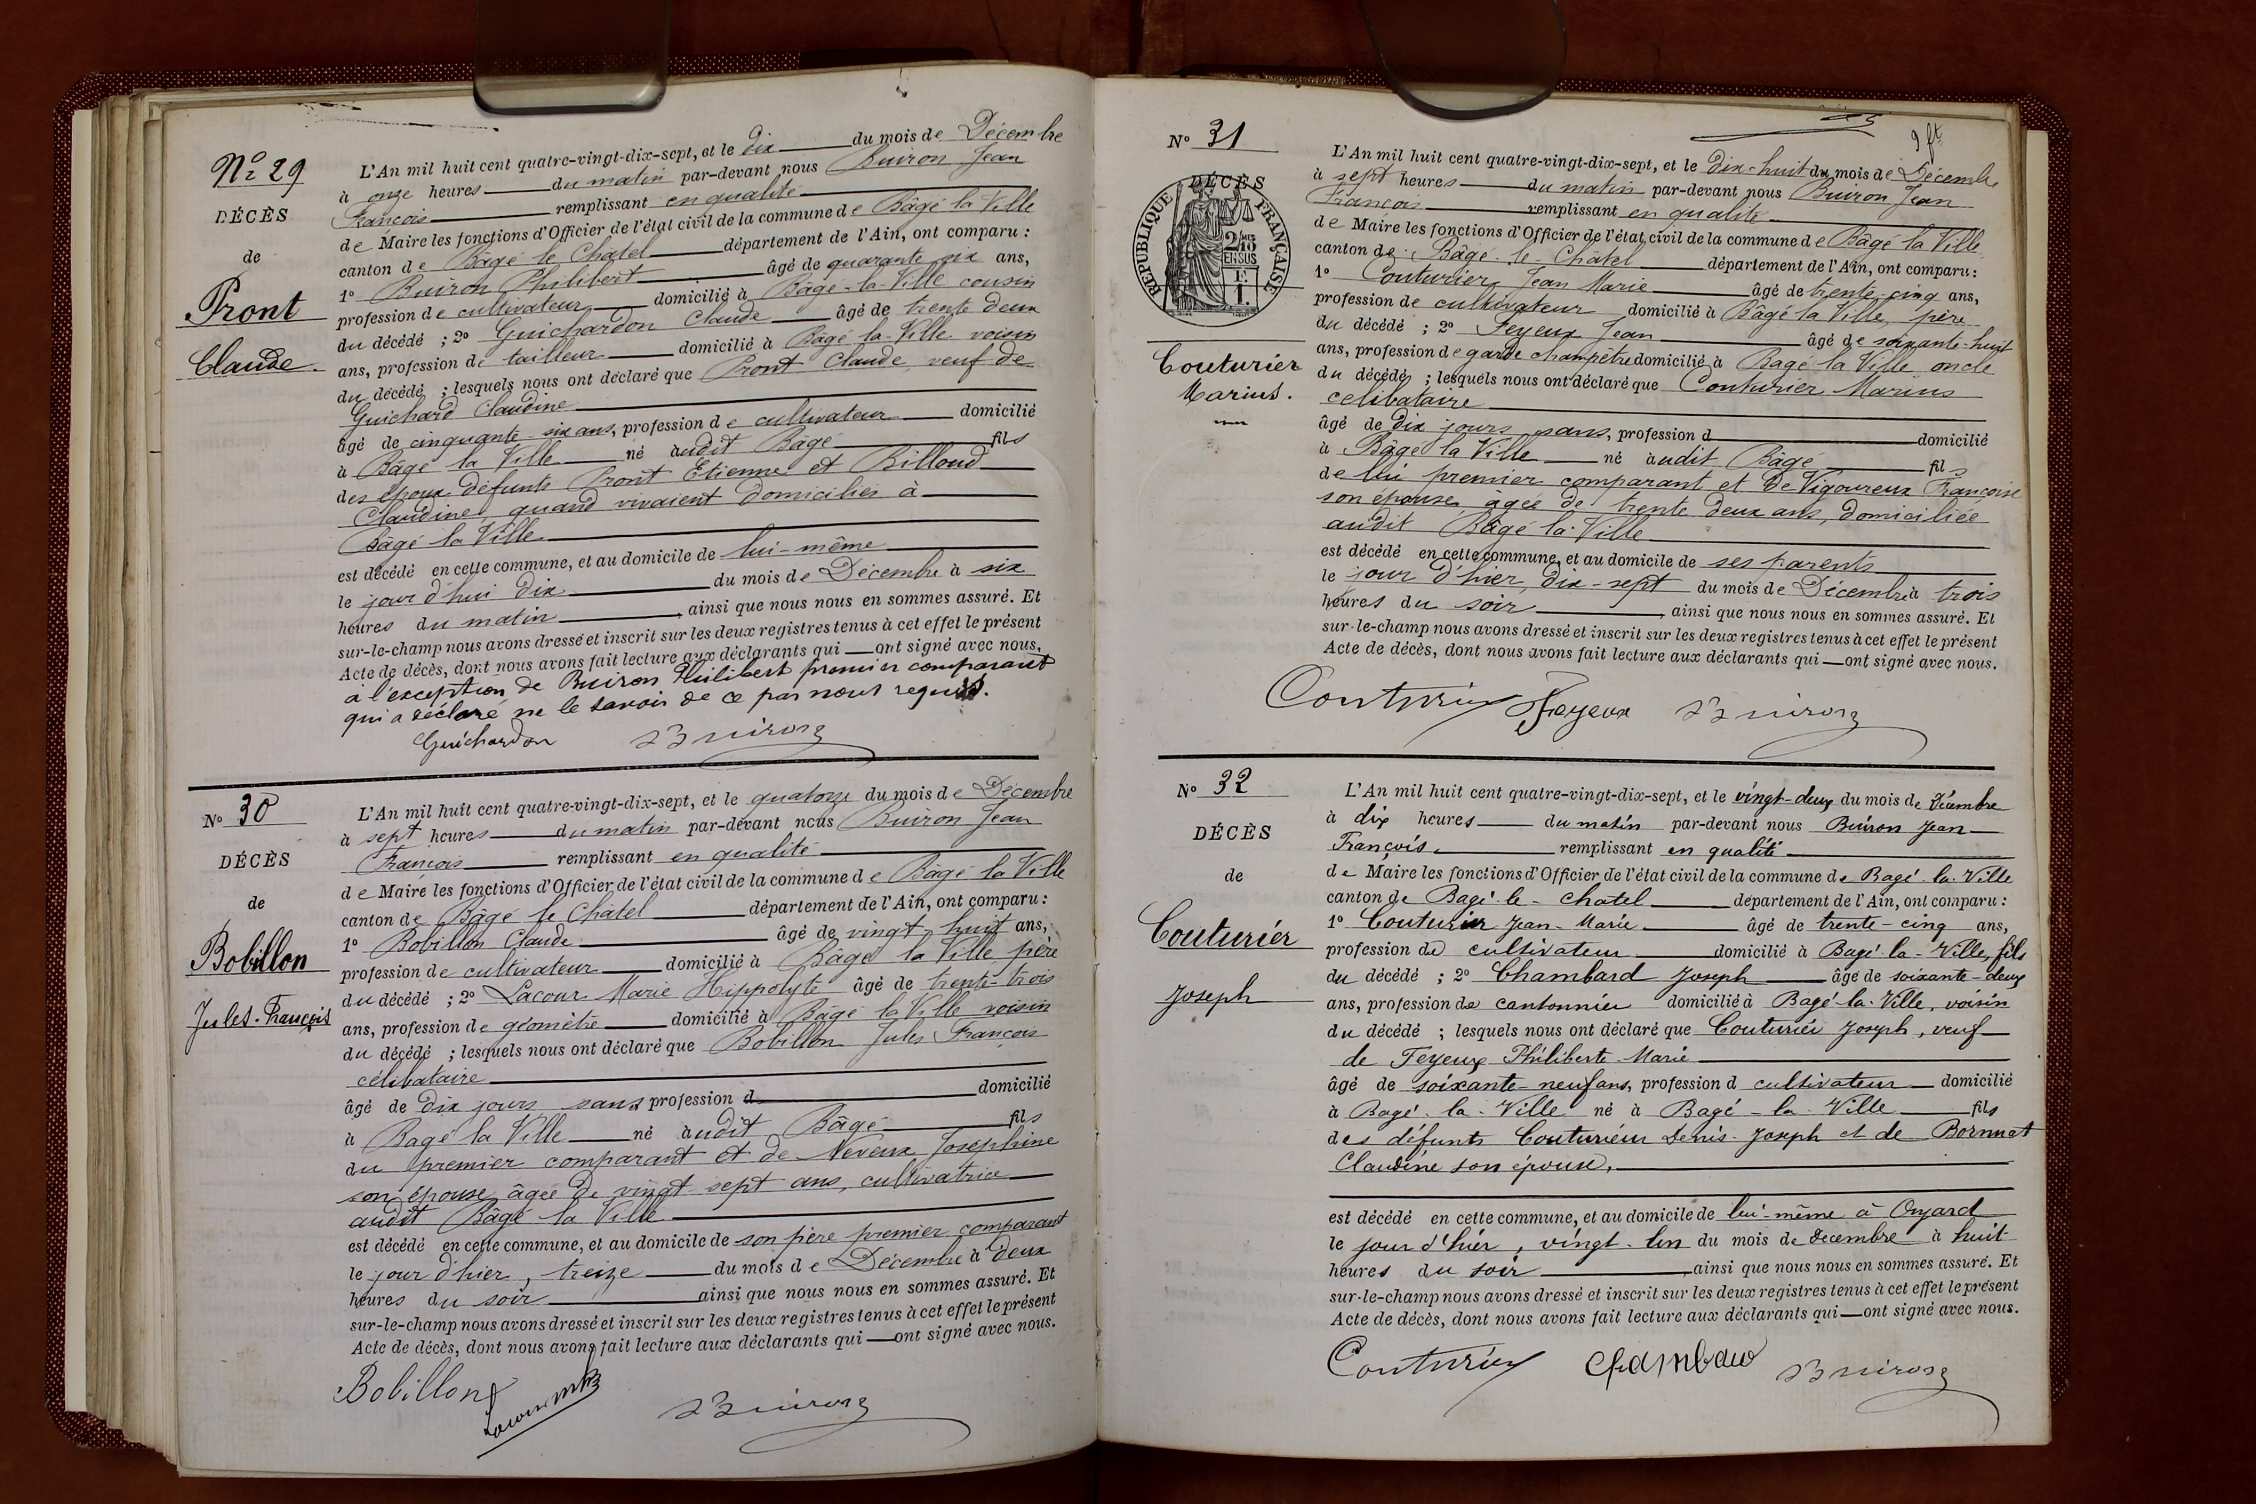 Nº 29
DÉCÈS
de
Pront
Claude.
L'An mil huit cent quatre-vingt-dix-sept, et le dix du mois de Décembre
à onze heures du matin par-devant nous Buiron Jean
François remplissant en qualité
de Maire les fonctions d'Officier de l'état civil de la commune de Bâgé la Ville
canton de Bâgé le Chatel département de l'Ain, ont comparu :
1º Buiron Philibert âgé de quarante six ans,
profession de cultivateur domicilié à Bâgé-la-Ville cousin
du décédé ; 2º Guichardon Claude âgé de trente deux
ans, profession de tailleur domicilié à Bâgé la Ville voisin
du décédé ; lesquels nous ont déclaré que Pront Claude, veuf de
Guichard Claudine
âgé de cinquante six ans, profession de cultivateur domicilié
à Bâgé la Ville né audit Bâgé fils
des époux défunts Pront Etienne et Billoud
Claudine, quand vivaient domiciliés à
Bâgé la Ville
est décédé en cette commune, et au domicile de lui-même
le jour d'hui dix du mois de Décembre à six
heures du matin ainsi que nous nous en sommes assuré. Et
sur-le-champ nous avons dressé et inscrit sur les deux registres tenus à cet effet le présent
Acte de décès, dont nous avons fait lecture aux déclarants qui ont signé avec nous,
à l'exception de Buiron Philibert premier comparant
qui a déclaré ne le savoir de ce par nous requis.
Guichardon Buiron
Nº 30
DÉCÈS
de
Bobillon
Jules-François
L'An mil huit cent quatre-vingt-dix-sept, et le quatorze du mois de Décembre
à sept heures du matin par-devant nous Buiron Jean
François remplissant en qualité
de Maire les fonctions d'Officier de l'état civil de la commune de Bâgé la Ville
canton de Bâgé le Châtel département de l'Ain, ont comparu :
1º Bobillon Claude âgé de vingt huit ans,
profession de cultivateur domicilié à Bâgé la Ville père
du décédé ; 2º Lacour Marie Hippolyte âgé de trente-trois
ans, profession de géomètre domicilié à Bâgé la Ville voisin
du décédé ; lesquels nous ont déclaré que Bobillon Jules François
célibataire
âgé de dix jours sans profession d domicilié
à Bagé la Ville né audit Bâgé fils
du premier comparant et de Neveux Joséphine
son épouse âgée de vingt sept ans, cultivatrice
audit Bâgé la Ville
est décédé en cette commune, et au domicile de son père premier comparant
le jour d'hier, treize du mois de Décembre à deux
heures du soir ainsi que nous nous en sommes assuré. Et
sur-le-champ nous avons dressé et inscrit sur les deux registres tenus à cet effet le présent
Acte de décès, dont nous avons fait lecture aux déclarants qui ont signé avec nous.
Bobillon Lacour Buiron
Nº 31
DÉCÈS
RÉPUBLIQUE FRANÇAISE
Couturier
Marius.
L'An mil huit cent quatre-vingt-dix-sept, et le dix-huit du mois de Décembre
à sept heures du matin par-devant nous Buiron Jean
François remplissant en qualité
de Maire les fonctions d'Officier de l'état civil de la commune de Bâgé la Ville
canton de Bâgé-le-Châtel département de l'Ain, ont comparu :
1º Couturier Jean Marie âgé de trente cinq ans,
profession de cultivateur domicilié à Bâgé la Ville, père
du décédé ; 2º Feyeux Jean âgé de soixante-huit
ans, profession de garde champêtre domicilié à Bagé la Ville oncle
du décédé ; lesquels nous ont déclaré que Couturier Marius
célibataire
âgé de dix jours sans, profession d domicilié
à Bâgé la Ville né audit Bâgé fils
de lui premier comparant et de Vigoureux Françoise
son épouse âgée de trente deux ans, domiciliée
audit Bâgé la Ville
est décédé en cette commune, et au domicile de ses parents
le jour d'hier, dix-sept du mois de Décembre à trois
heures du soir, ainsi que nous nous en sommes assuré. Et
sur-le-champ nous avons dressé et inscrit sur les deux registres tenus à cet effet le présent
Acte de décès, dont nous avons fait lecture aux déclarants qui ont signé avec nous.
Couturier Feyeux Buiron
Nº 32
DÉCÈS
de
Couturiér
Joseph
L'An mil huit cent quatre-vingt-dix-sept, et le vingt-deux du mois de Décembre
à dix heures du matin par-devant nous Buiron Jean
François remplissant en qualité
de Maire les fonctions d'Officier de l'état civil de la commune de Bagé-la-Ville
canton de Bagé-le-Chatel département de l'Ain, ont comparu :
1º Couturier Jean-Marie âgé de trente-cinq ans,
profession de cultivateur domicilié à Bagé-la-Ville, fils
du décédé ; 2º Chambard Joseph âgé de soixante-deux
ans, profession de cantonnier domicilié à Bagé-la-Ville, voisin
du décédé ; lesquels nous ont déclaré que Couturiér Joseph, veuf
de Feyeux Philiberte Marie
âgé de soixante-neuf ans, profession d cultivateur domicilié
à Bagé-la-Ville né à Bagé-la-Ville fils
des défunts Couturiéur Denis-Joseph et de Bornuat
Claudine son épouse,
est décédé en cette commune, et au domicile de lui-même à Onjard
le jour d'hiér, vingt-un du mois de Décembre à huit
heures du soir ainsi que nous nous en sommes assuré. Et
sur-le-champ nous avons dressé et inscrit sur les deux registres tenus à cet effet le présent
Acte de décès, dont nous avons fait lecture aux déclarants qui ont signé avec nous.
Couturier Chambard Buiron